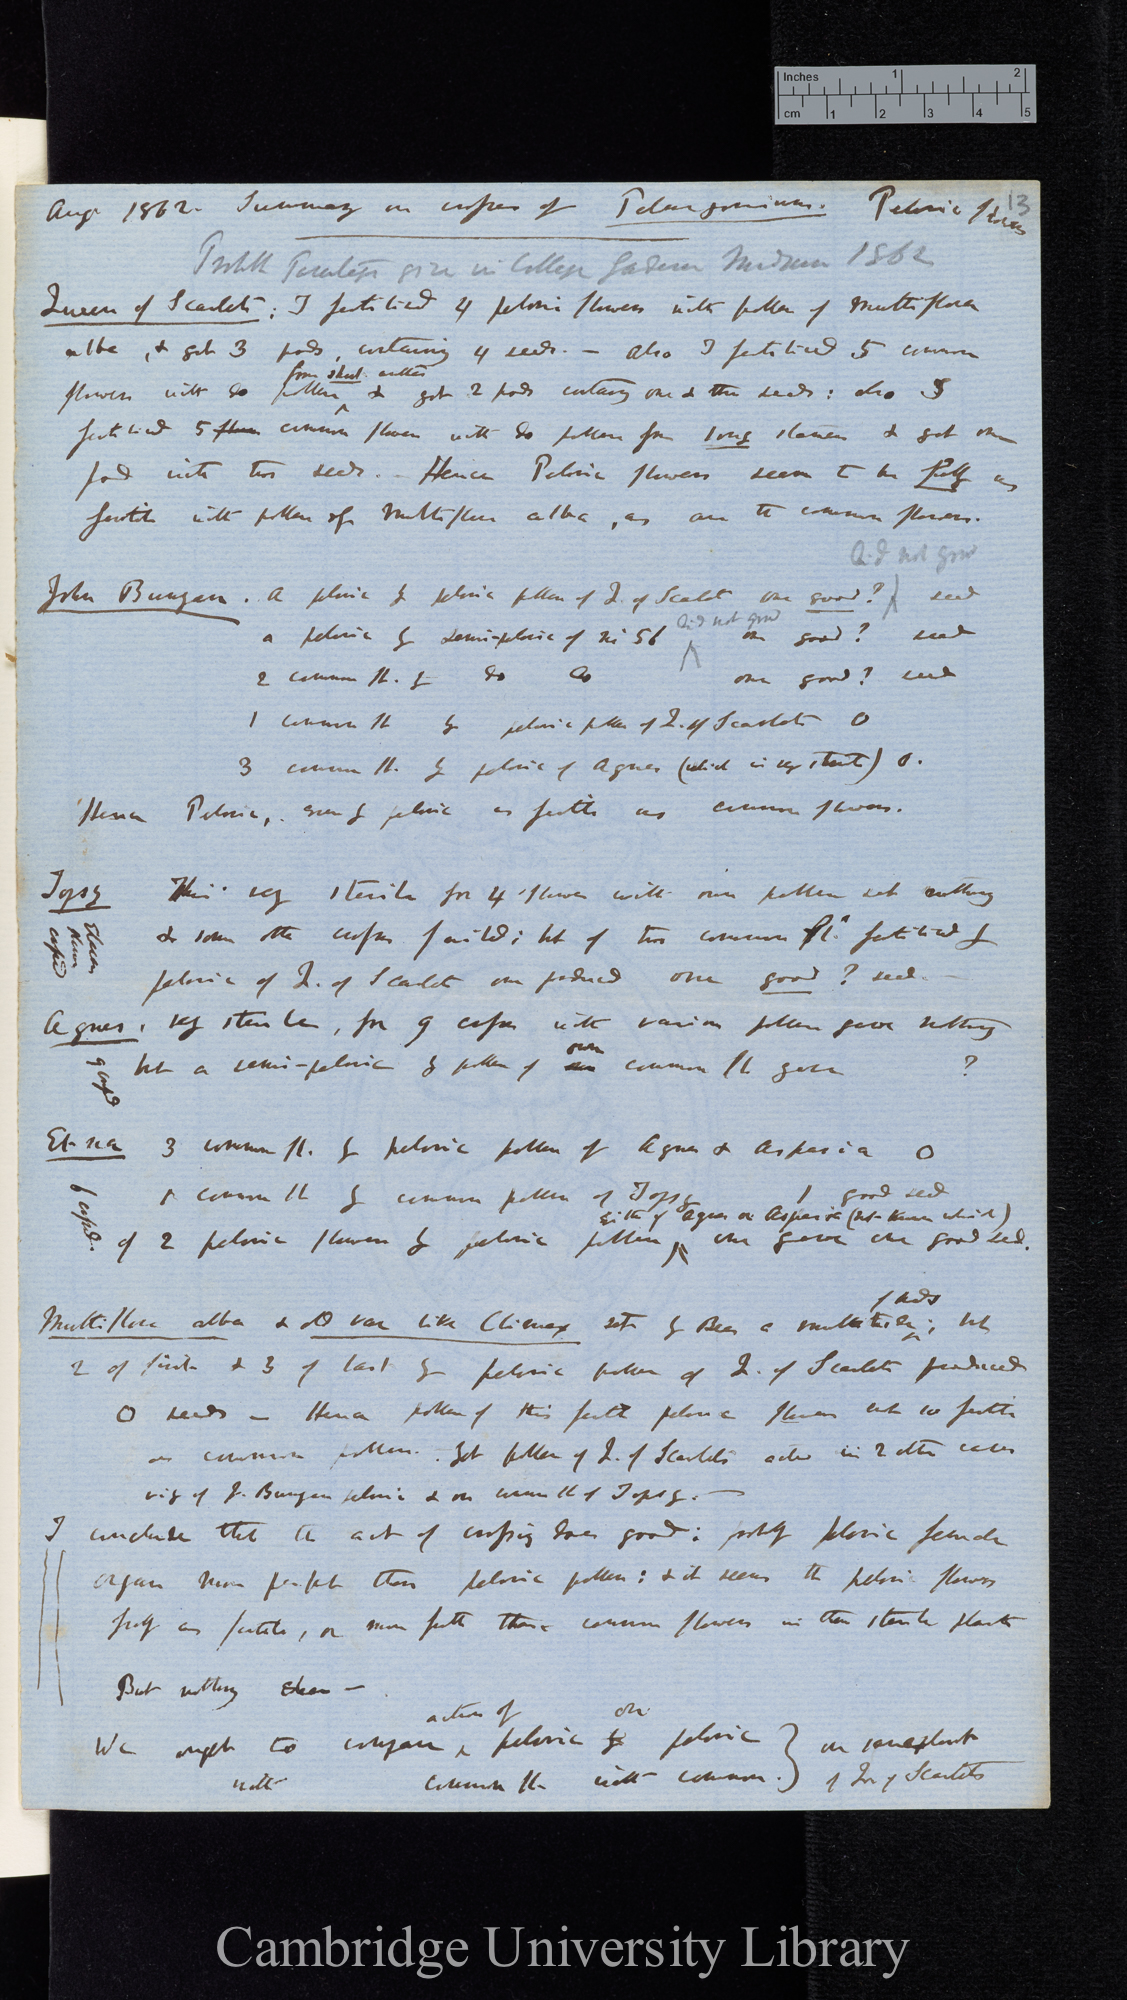 Inches 1 2
cm 1 2 3 4 5
13
Aug 1862. Summary on crosses of Pelargonium. Peloric flowers
in College Garden Museum 1862
Queen of Scarlets; I fertilised 4 peloric flowers with pollen of Multiflora
alba, & got 3 pods, containing 4 seeds. — Also I fertilised 5 common
from short anthers
flowers with do pollen & got 2 pods containing one & three seeds: also
fertilised 5 flowers common flowers with do pollen from long stamens & got one
pod with two seeds. Hence Peloric flowers seem to be fully as
fertile with pollen of Multiflora alba, as are the common flowers.
Did not grow
John Bunyan. A peloric by peloric pollen of Q. of Scarlet one good? seed
Did not grow
a peloric by semi-peloric of no 56 one good? seed
2 common fl. by do do one good? seed
1 common fl by peloric pollen of Q. of Scarlets 0
3 common fl. by peloric of Agnes (which is very sterile) 0.
Hence Peloric, even by peloric as fertile as common flowers.
Topsy This very sterile for 4 flowers with own pollen set nothing
& some other crosses failed; but of two common fl. fertilised by
peloric of Q. of Scarlets one produced one good? seed. —
Eleven
crossed
Agnes, very sterile, for 9 crosses with various pollen gave nothing
own
but a semi-peloric by pollen of common fl. gave ?
9 crossed
Etna 3 common fl. by peloric pollen of Agnes & Aspasia 0
1 common fl by common pollen of Topsy 1 good seed
either of Agnes or Aspasia (not known which)
of 2 peloric flowers by peloric pollen one gave one good seed.
6 crossed.
of seeds
Multiflora alba & old var like Climax sets by Bees a multitude; but
2 of first & 3 of last by peloric pollen of Q. of Scarlets produced
0 seeds — Hence pollen of this fertile peloric flower not so fertile
as common pollen. Yet pollen of Q. of Scarlets acted in 2 other cases
viz of J. Bunyan peloric & on common fl of Topsy. —
I conclude that the act of crossing does good; probably peloric female
organs more perfect than peloric pollen: & it seems the peloric flowers
fully as fertile, or more fertile than common flowers in these sterile plants
But nothing clear —
action of on
We ought to compare peloric by peloric } on same plant
with common fl. with common. } of Qn of Scarlets
Cambridge University Library